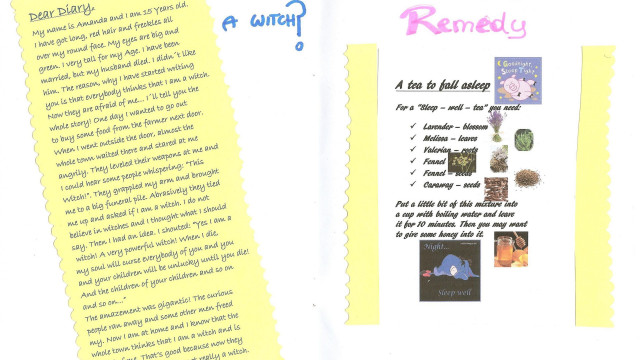 Dear Diary,
My name is Amanda and I am 15 Years old.
I have got long, red hair and freckles all
over my round face. My eyes are big and
green. I very tall for my Age. I have been
married, but my husband died. I didn't like
him. The reason, why I have started writing
you is that everybody thinks that I am a witch.
Now they are afraid of me... I'll tell you the
whole story! One day I wanted to go out
to buy some food from the farmer next door.
When I went outside the door, almost the
whole town waited there and stared at me
angrily. They leveled their weapons at me and
I could hear some people whispering: "This
Witch!". They grappled my arm and brought
me to a big funeral pile. Abrasively they tied
me up and asked if I am a witch. I do not
believe in witches and I thought what I should
say. Then I had an idea. I shouted: "Yes I am a
witch! A very powerful witch! When I die,
my soul will curse everybody of you and you
and your children will be unlucky until you die!
And the children of your children and so on
and so on..."
The amazement was gigantic! The curious
people ran away and some other men freed
my. Now I am at home and I know that the
whole town thinks that I am a witch and is
That's good because now they
really a witch.
A WITCH?!
Remedy
Goodnight,
Sleep Tight
A tea to fall asleep
For a "Sleep – well – tea" you need:
✓ Lavender – blossom
✓ Melissa – leaves
✓ Valerian – roots
✓ Fennel
✓ Fennel – seeds
✓ Caraway – seeds
Put a little bit of this mixture into
a cup with boiling water and leave
it for 10 minutes. Then you may want
to give some honey into it.
Night...
Sleep well